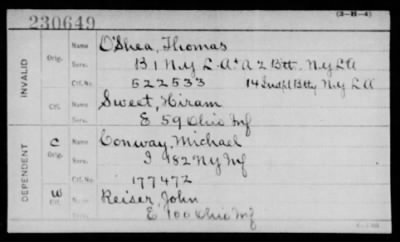 230649
(3-H-4)
INVALID
Orig. Name O'Shea, Thomas
Serv. B 1 N.Y. L.A. & A 2 Btt. N.Y. L.A
Ctf. No. 522533 14 Indpt Btty N.Y. L.A
Ctf. Name Sweet, Hiram
Serv. E 59 Ohio Inf
DEPENDENT
C Orig. Name Conway, Michael
Serv. I 182 N.Y. Inf
Ctf. No. 177472
W Ctf. Name Reiser, John
Serv. E 100 Ohio Inf